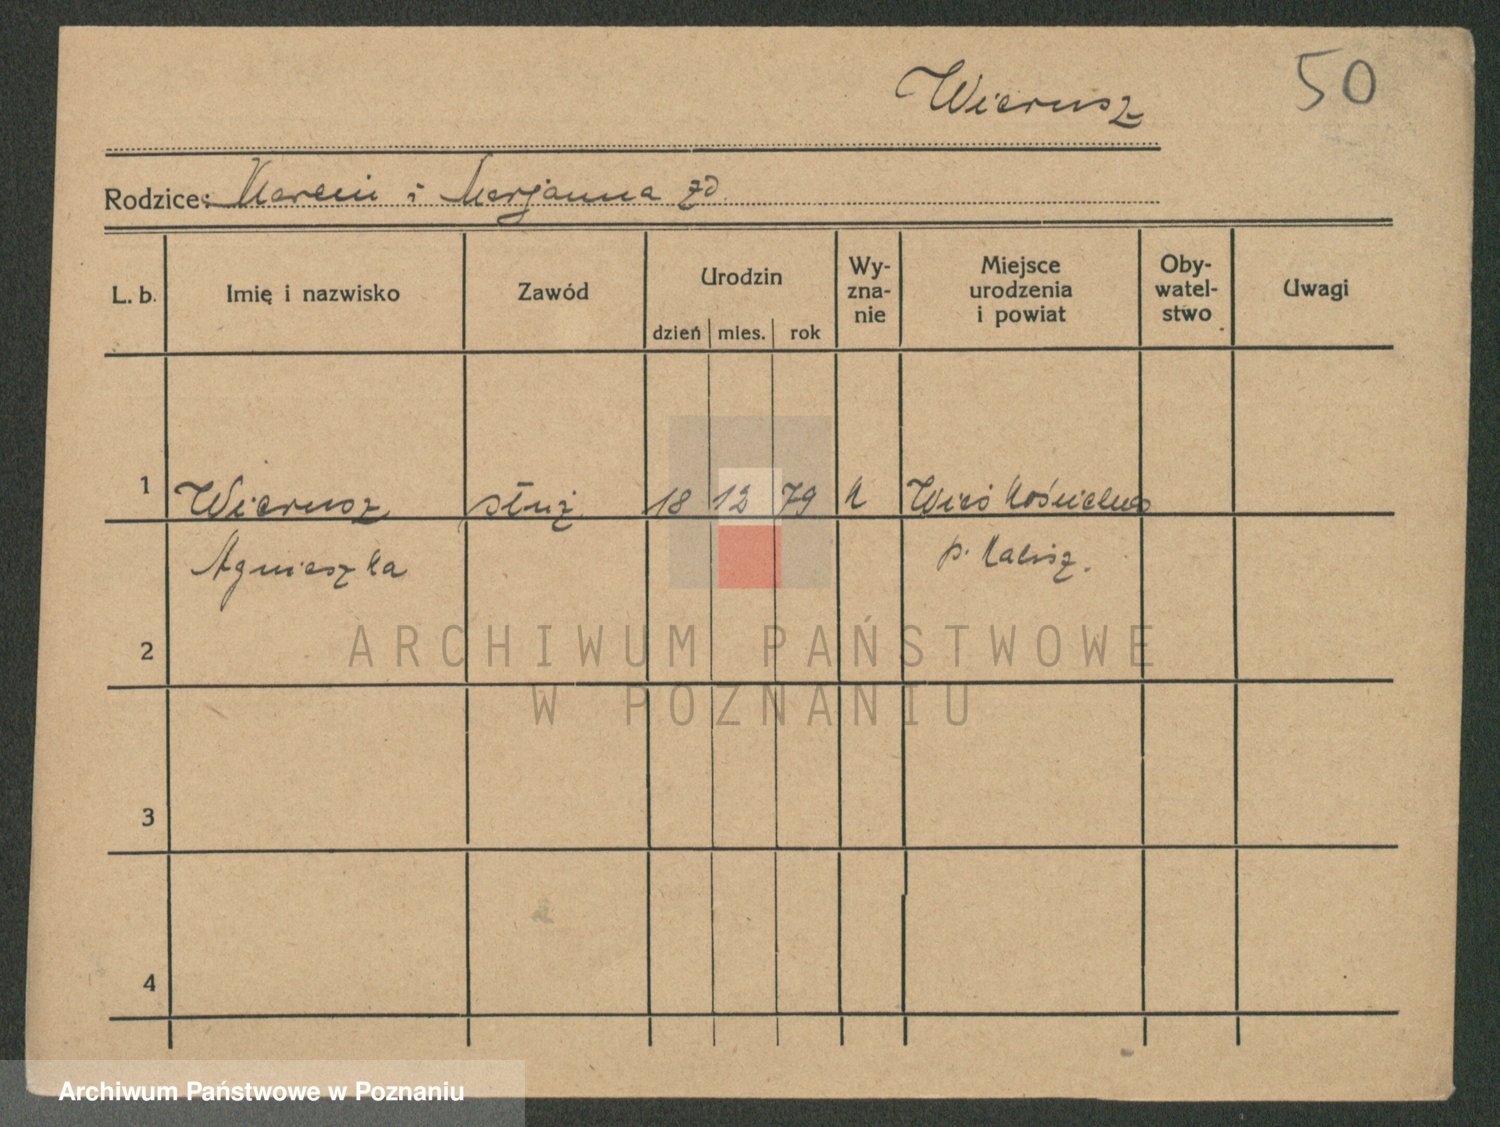 Wierusz 50
Rodzice: Marcin i Marjanna zd
L. b. Imię i nazwisko Zawód Urodzin dzień mies. rok Wy-zna-nie Miejsce urodzenia i powiat Oby-watel-stwo Uwagi
1 Wierusz służ 18 12 79 k Wieś Kościelna
Agnieszka p. Kalisz.
2
3
4
ARCHIWUM PAŃSTWOWE
W POZNANIU
Archiwum Państwowe w Poznaniu